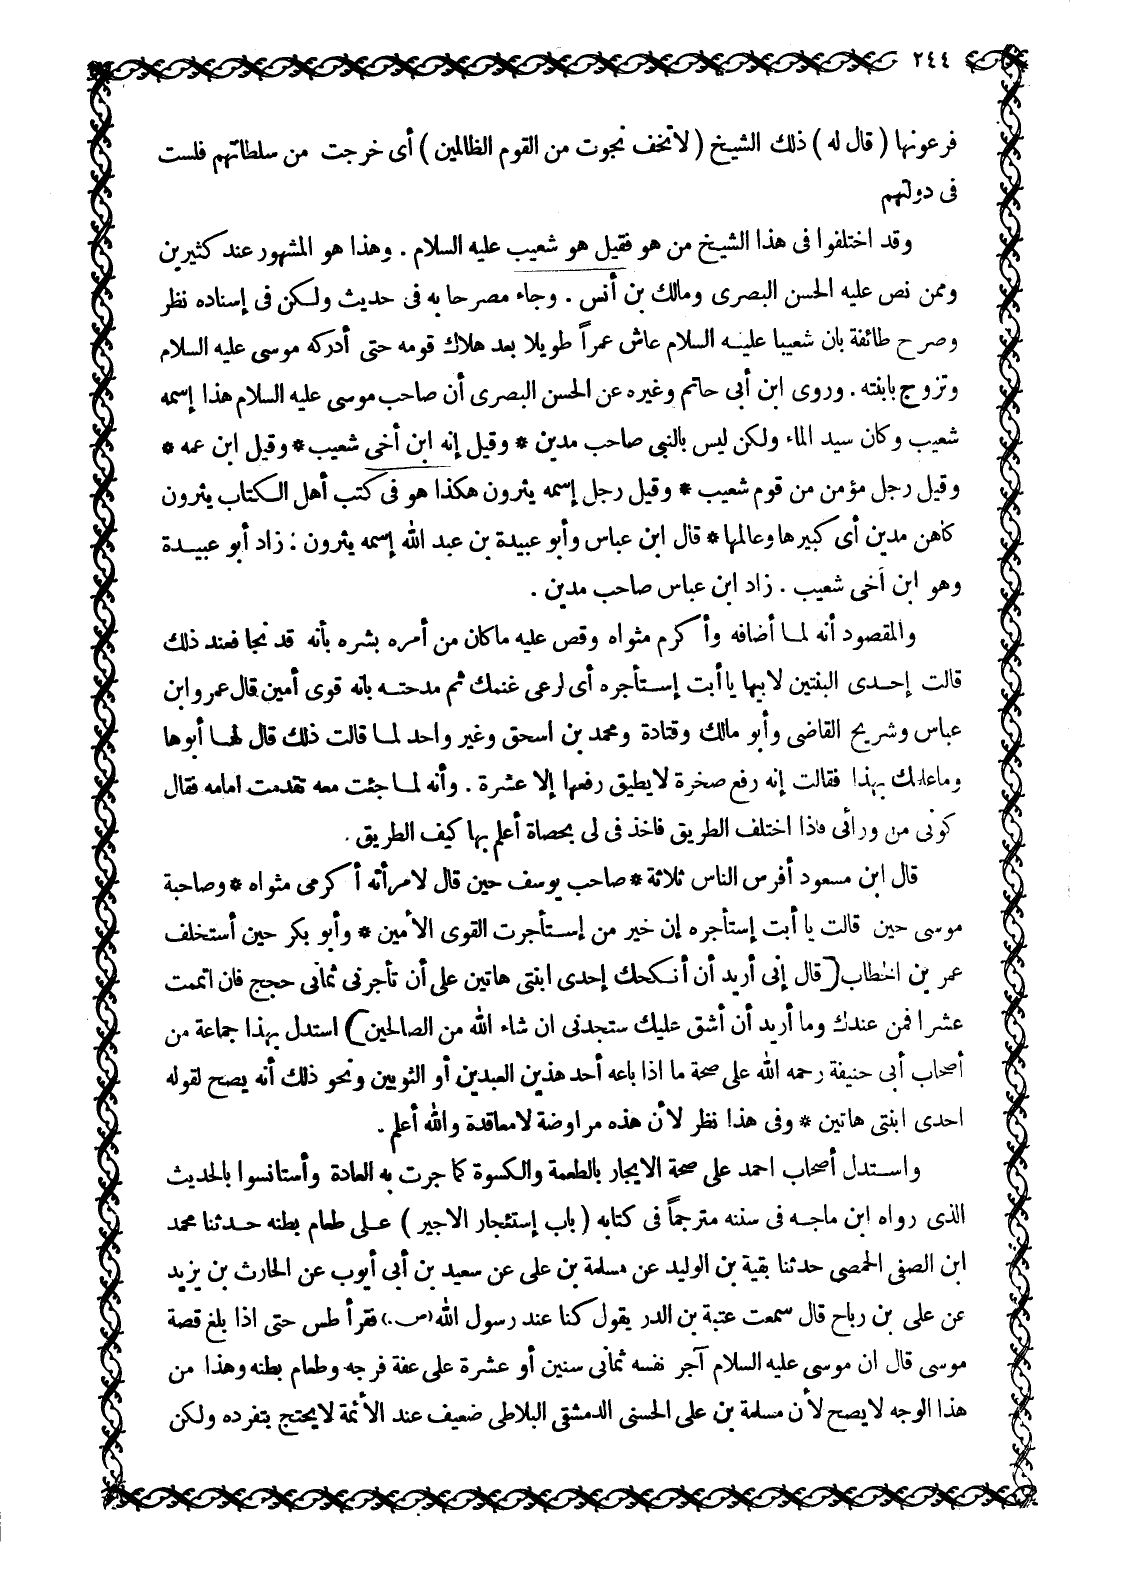 ٢٤٤
فرعونها ( قال له ) ذلك الشيخ ( لا تخف نجوت من القوم الظالمين ) أى خرجت من سلطانهم فلست
فى دولتهم
وقد اختلفوا فى هذا الشيخ من هو فقيل هو شعيب عليه السلام . وهذا هو المشهور عند كثيرين
وممن نص عليه الحسن البصرى ومالك بن أنس . وجاء مصرحا به فى حديث ولكن فى إسناده نظر
وصرح طائفة بان شعيبا عليه السلام عاش عمراً طويلا بعد هلاك قومه حتى أدركه موسى عليه السلام
وتزوج بابنته . وروى ابن أبى حاتم وغيره عن الحسن البصرى أن صاحب موسى عليه السلام هذا إسمه
شعيب وكان سيد الماء ولكن ليس بالنبى صاحب مدين * وقيل إنه ابن أخى شعيب * وقيل ابن عمه *
وقيل رجل مؤمن من قوم شعيب * وقيل رجل إسمه يثرون هكذا هو فى كتب أهل الكتاب يثرون
كاهن مدين أى كبيرها وعالمها * قال ابن عباس وأبو عبيدة بن عبد الله إسمه يثرون : زاد أبو عبيدة
وهو ابن أخى شعيب . زاد ابن عباس صاحب مدين .
والمقصود أنه لما أضافه وأكرم مثواه وقص عليه ماكان من أمره بشره بأنه قد نجا فعند ذلك
قالت إحدى البنتين لابيها يا أبت إستأجره أى لرعى غنمك ثم مدحته بانه قوى أمين قال عمر وابن
عباس وشريح القاضى وأبو مالك وقتادة ومحمد بن اسحق وغير واحد لما قالت ذلك قال لها أبوها
وما علمك بهذا فقالت إنه رفع صخرة لا يطيق رفعها إلا عشرة . وأنه لما جئت معه تقدمت امامه فقال
كونى من ورائى فاذا اختلف الطريق فاخذفى لى بحصاة أعلم بها كيف الطريق .
قال ابن مسعود أفرس الناس ثلاثة * صاحب يوسف حين قال لامرأته أكرمى مثواه * وصاحبة
موسى حين قالت يا أبت إستأجره إن خير من إستأجرت القوى الأمين * وأبو بكر حين أستخلف
عمر بن الخطاب ( قال إنى أريد أن أنكحك إحدى ابنتى هاتين على أن تأجرنى ثمانى حجج فان اتممت
عشرا فمن عندك وما أريد أن أشق عليك ستجدنى ان شاء الله من الصالحين ) استدل بهذا جماعة من
أصحاب أبى حنيفة رحمه الله على صحة ما اذا باعه أحد هذين العبدين أو الثوبين ونحو ذلك أنه يصح لقوله
احدى ابنتى هاتين * وفى هذا نظر لأن هذه مراوضة لا معاقدة والله أعلم .
واستدل أصحاب احمد على صحة الايجار بالطعمة والكسوة كما جرت به العادة وأستانسوا بالحديث
الذى رواه ابن ماجه فى سننه مترجماً فى كتابه ( باب إستئجار الاجير ) على طعام بطنه حدثنا محمد
ابن الصفى الحمصى حدثنا بقية بن الوليد عن مسلمة بن على عن سعيد بن أبى أيوب عن الحارث بن يزيد
عن على بن رباح قال سمعت عتبة بن الدر يقول كنا عند رسول الله (ص.) فقرأ طس حتى اذا بلغ قصة
موسى قال ان موسى عليه السلام آجر نفسه ثمانى سنين أو عشرة على عفة فرجه وطعام بطنه وهذا من
هذا الوجه لا يصح لأن مسلمة بن على الحسنى الدمشقى البلاطى ضعيف عند الأئمة لا يحتج بتفرده ولكن